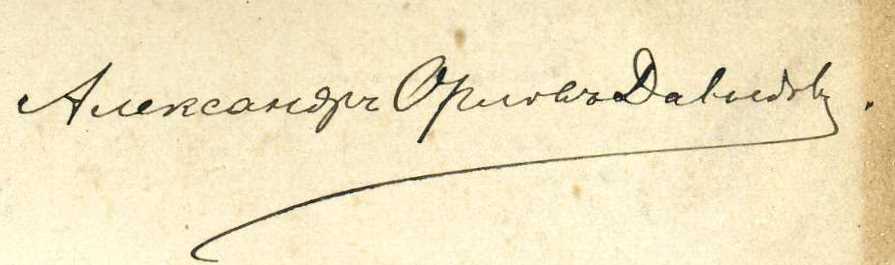 Александръ Орловъ Давыдовъ.